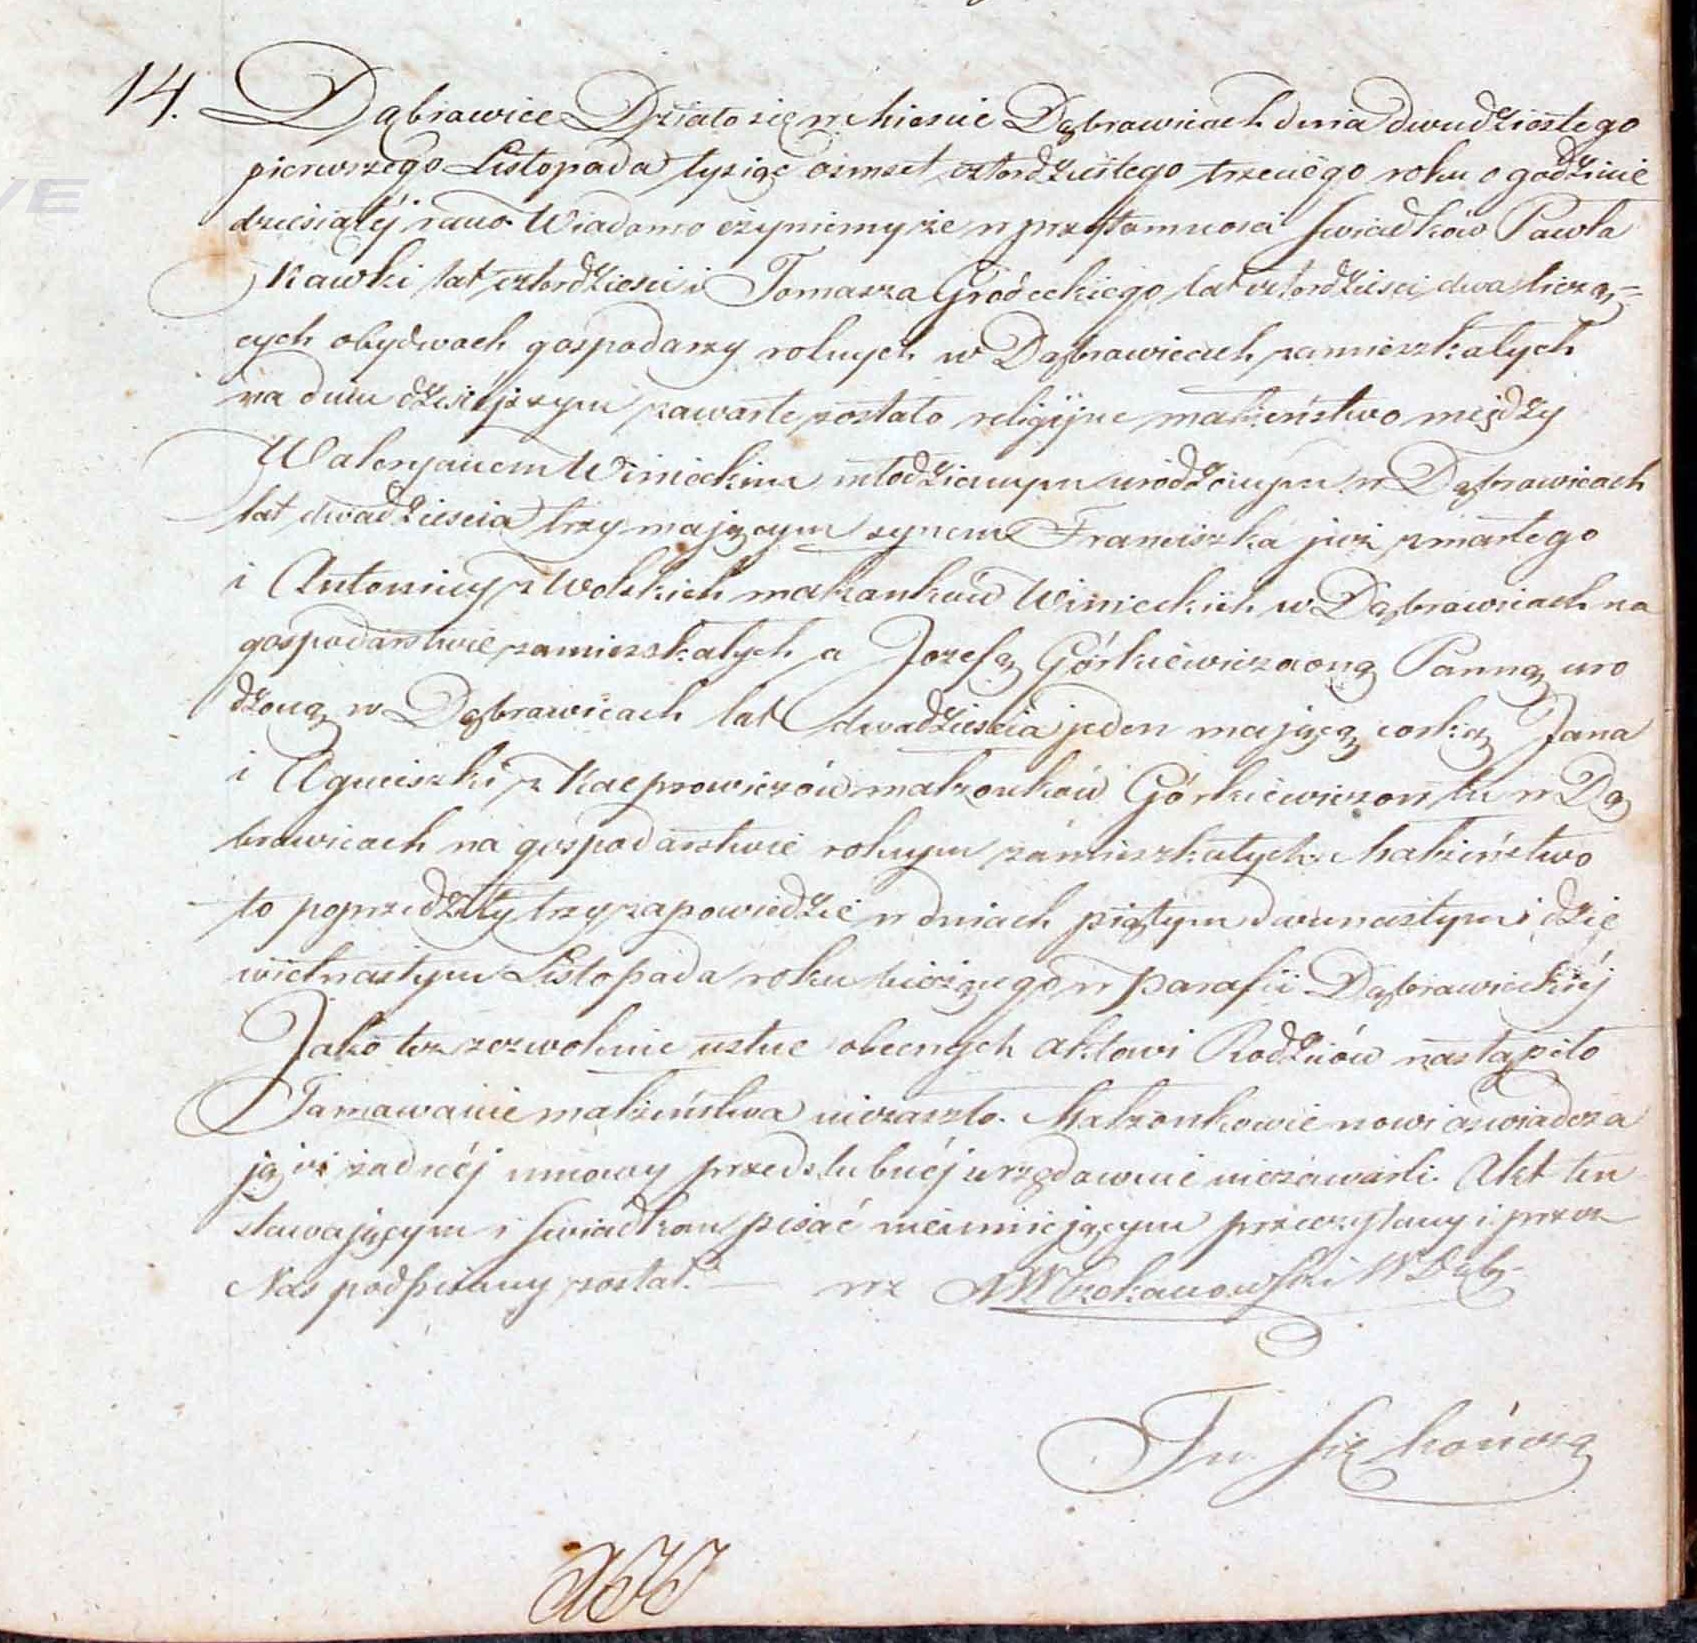 14. Dąbrawice Działo się w Mieście Dąbrawicach dnia dwudziestego
pierwszego Listopada tysiąc ośmset czterdziestego trzeciego roku o godzinie
dziesiątéj rano Wiadomo czyniemy że w przytomności Swiadków Pawła
Kawki lat czterdzieści i Tomasza Grodeckiego lat czterdzieści dwa liczą=
cych obydwoch gospodarzy rolnych w Dąbrawicach zamieszkałych
na dniu dzisiéjszym zawarte zostało religijne małżeństwo między
Waleryanem Winieckim młodzianym urodzonym w Dąbrawicach
lat dwadzieścia trzy mającym synem Franciszka już zmarłego
i Antoniny z Wolskich małżonków Winieckich w Dąbrawicach na
gospodarstwie zamieszkałych a Jozefą Górkiewiczoną Panną uro
dzoną w Dąbrawicach lat dwadzieścia jeden mającą corką Jana
i Agnieszki z Kacprowiczów małżonków Górkiewiczow tu w Dą
brawicach na gospodarstwie rolnym zamieszkałych. Małżeństwo
to poprzedziły trzy zapowiedzie w dniach piątym dwunastym i dzie
wietnastym Listopada roku bieżącego w parafii Dąbrawieckiéj
Jako też zezwolenie ustne obecnych aktowi Rodziców nastąpiło
Tamawanie małżeństwa nie zaszło. Małżonkowie nowi oswiadcza
ją iż żadnéj umowy przedslubnéj urzędownie niezawarli. Akt ten
stawającym i Swiadkom pisać nieumiejącym przeczytany i przez
Nas podpisany został. — W Dąb.
Tu Się kończą